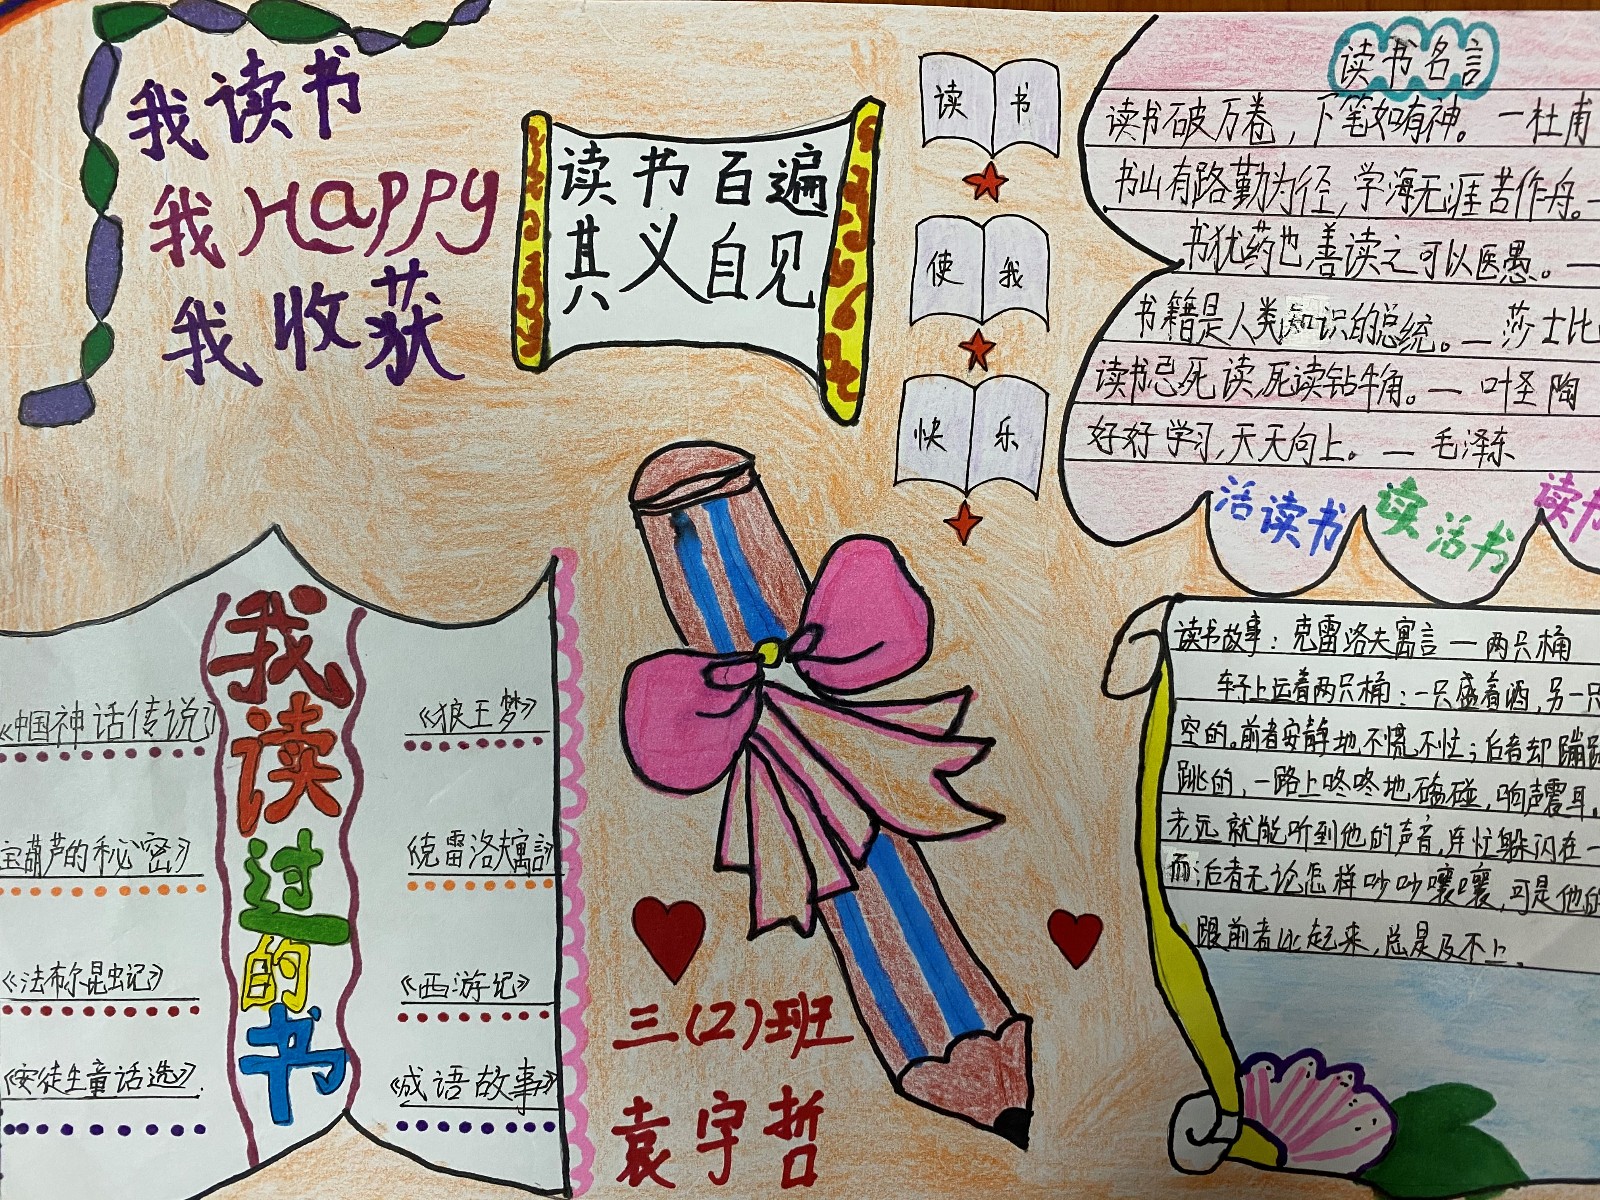 我读书
我Happy
我收获
读书百遍
其义自见
读书
使我
快乐
读书名言
读书破万卷，下笔如有神。一杜甫
书山有路勤为径，学海无涯苦作舟。一
书犹药也善读之可以医愚。一
书籍是人类知识的总统。一莎士比
读书忌死读，死读钻牛角。一 叶圣陶
好好学习，天天向上。一 毛泽东
活读书 读活书 读书
我读过的书
《中国神话传说》
宝葫芦的秘密》
《法布尔昆虫记》
《安徒生童话选》.
《狼王梦》
《克雷洛夫寓言》
《西游记》
《成语故事》
三(2)班
袁宇哲
读书故事：克雷洛夫寓言一两只桶
车子上运着两只桶：一只盛着酒，另一只
空的。前者安静地不慌不忙；后者却蹦
跳的，一路上咚咚地磕碰，响声震耳。
老远就能听到他的声音，连忙躲闪在一
而；后者无论怎样吵吵嚷嚷，可是他的
跟前者比起来，总是及不上。